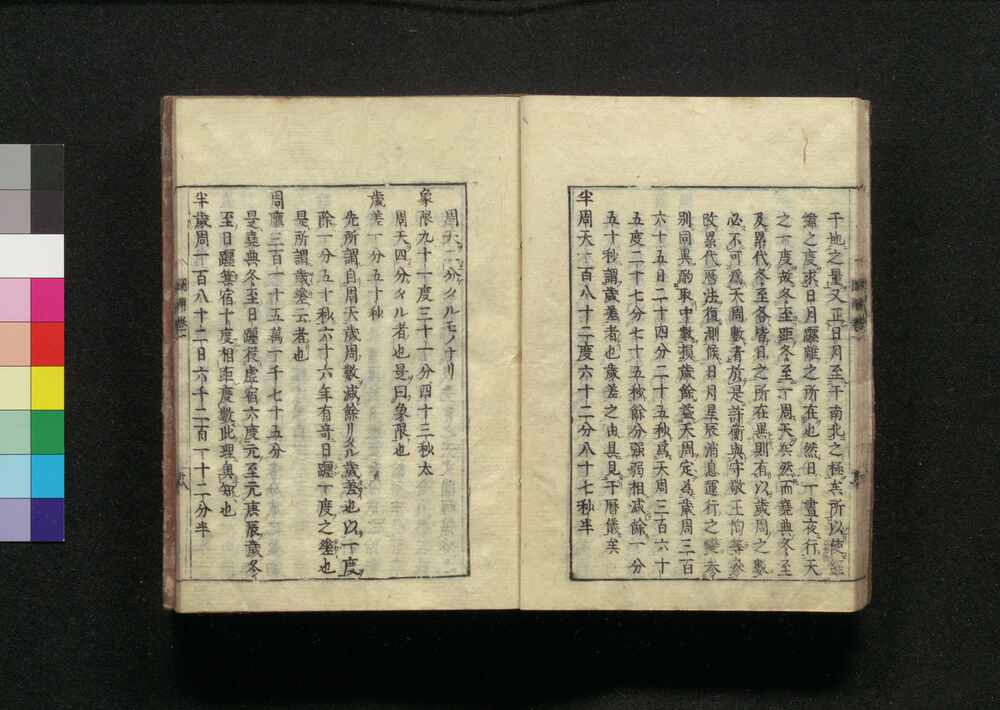 于地之量又正日月至于南北之極矣所以使經
緯之度求日月躔離之所在也然日一晝夜行天
之一度故冬至距冬至一周天矣然而堯典冬至
及累代冬至各皆日之所在異則有以歲周之數
必不可爲天周數者於是許衡與守敬王恂等
改累代曆法復測候日月星辰消息運行之變參
別同異酌取中數損歲餘益天周定爲歲周三百
六十五日二十四分二十五秋爲天周三百六十
五度二十七分七十五秋餘分强弱相減餘一分
五十秋謂歲差者也歲差之由具見于曆儀矣
半周天一百八十二度六十二分八十七秋半
周天二分タルモノナリ
象限九十一度三十一分四十三秋太
周天四分タル者也是曰象限也
歲差一分五十秋
先所謂自周天歲周數減餘リタル歲差也以一度
除一分五十秋六十六年有奇日躔一度之差也
是所謂歲差云者也
周應三百一十五萬一千七十五分
是堯典冬至日躔從虛宿六度元至元庚辰歲冬
至日躔箕宿十度相距度數此理奧知也
半歲周一百八十二日六千二百一十二分半